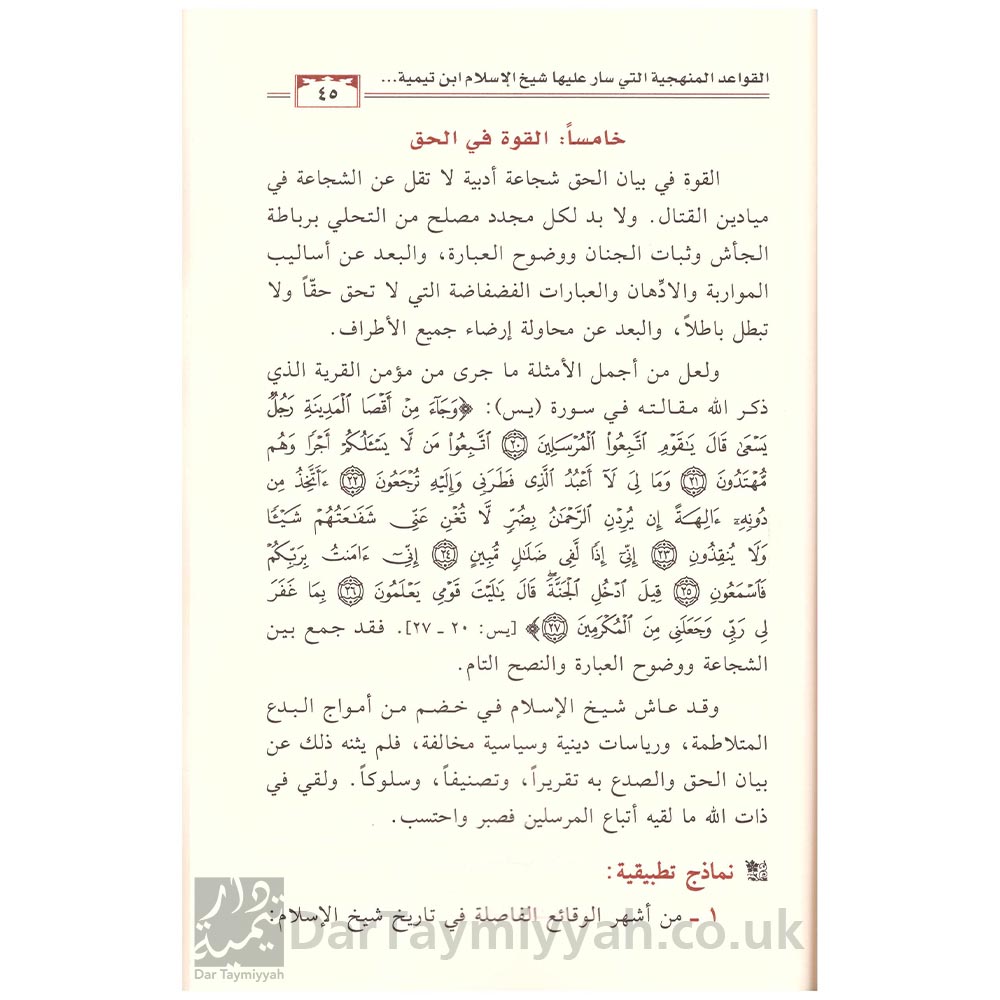 القواعد المنهجية التي سار عليها شيخ الإسلام ابن تيمية...
٤٥
خامساً: القوة في الحق
القوة في بيان الحق شجاعة أدبية لا تقل عن الشجاعة في
ميادين القتال. ولا بد لكل مجدد مصلح من التحلي برباطة
الجأش وثبات الجنان ووضوح العبارة، والبعد عن أساليب
المواربة والادِّهان والعبارات الفضفاضة التي لا تحق حقّاً ولا
تبطل باطلاً، والبعد عن محاولة إرضاء جميع الأطراف.
ولعل من أجمل الأمثلة ما جرى من مؤمن القرية الذي
ذكر الله مقالته في سورة (يس): ﴿وَجَآءَ مِنْ أَقْصَا ٱلْمَدِينَةِ رَجُلٌ
يَسْعَىٰ قَالَ يَٰقَوْمِ ٱتَّبِعُوا۟ ٱلْمُرْسَلِينَ ٢٠ ٱتَّبِعُوا۟ مَن لَّا يَسْـَٔلُكُمْ أَجْرًا وَهُم
مُّهْتَدُونَ ٢١ وَمَا لِىَ لَآ أَعْبُدُ ٱلَّذِى فَطَرَنِى وَإِلَيْهِ تُرْجَعُونَ ٢٢ ءَأَتَّخِذُ مِن
دُونِهِۦٓ ءَالِهَةً إِن يُرِدْنِ ٱلرَّحْمَٰنُ بِضُرٍّ لَّا تُغْنِ عَنِّى شَفَٰعَتُهُمْ شَيْـًٔا
وَلَا يُنقِذُونِ ٢٣ إِنِّىٓ إِذًا لَّفِى ضَلَٰلٍ مُّبِينٍ ٢٤ إِنِّىٓ ءَامَنتُ بِرَبِّكُمْ
فَٱسْمَعُونِ ٢٥ قِيلَ ٱدْخُلِ ٱلْجَنَّةَ ۖ قَالَ يَٰلَيْتَ قَوْمِى يَعْلَمُونَ ٢٦ بِمَا غَفَرَ
لِى رَبِّى وَجَعَلَنِى مِنَ ٱلْمُكْرَمِينَ ٢٧﴾ [يس: ٢٠ ـ ٢٧]. فقد جمع بين
الشجاعة ووضوح العبارة والنصح التام.
وقد عاش شيخ الإسلام في خضم من أمواج البدع
المتلاطمة، ورياسات دينية وسياسية مخالفة، فلم يثنه ذلك عن
بيان الحق والصدع به تقريراً، وتصنيفاً، وسلوكاً. ولقي في
ذات الله ما لقيه أتباع المرسلين فصبر واحتسب.
نماذج تطبيقية:
١ ـ من أشهر الوقائع الفاصلة في تاريخ شيخ الإسلام:
دار تيمية
Dar Taymiyyah
DarTaymiyyah.co.uk